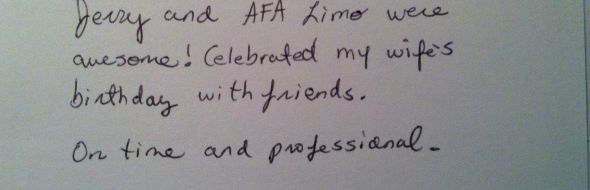 Jerry and AFA Limo were
awesome! Celebrated my wife's
birthday with friends.
On time and professional.